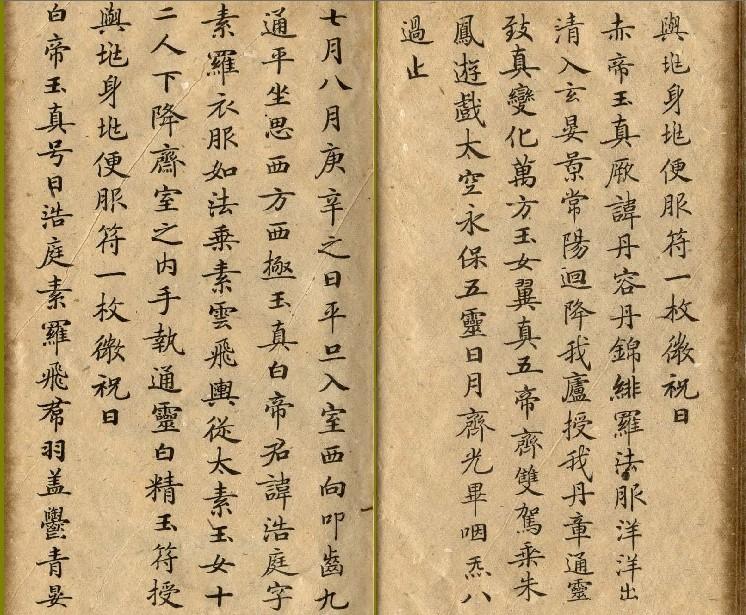 與地身地便服符一枚微祝曰
赤帝玉真厥諱丹容丹錦緋羅法服洋洋出
清入玄晏景常陽迴降我廬授我丹章通靈
致真變化萬方玉女翼真五帝齊雙駕乘朱
鳳遊戲太空永保五靈日月齊光畢咽炁八
過止
七月八月庚辛之日平旦入室西向叩齒九
通平坐思西方西極玉真白帝君諱浩庭字
素羅衣服如法乘素雲飛輿從太素玉女十
二人下降齋室之内手執通靈白精玉符授
與地身地便服符一枚微祝曰
白帝玉真号曰浩庭素羅飛帬羽盖鬱青晏